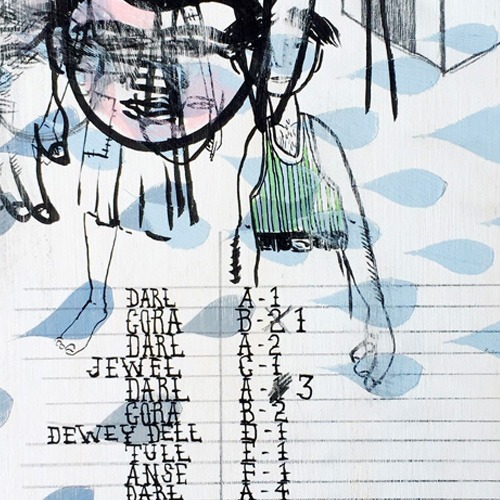 DARL A-1
CORA B-2 1
DARL A-2
JEWEL C-1
DARL A- 3
CORA B-2
DEWEY DELL D-1
TULL E-1
ANSE F-1
DARL A-4